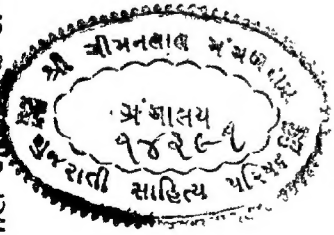 શ્રી ચીમનલાલ મંગળદાસ
ગ્રંથાલય
૧૪૨૯-૧
ગુજરાતી સાહિત્ય પરિષદ